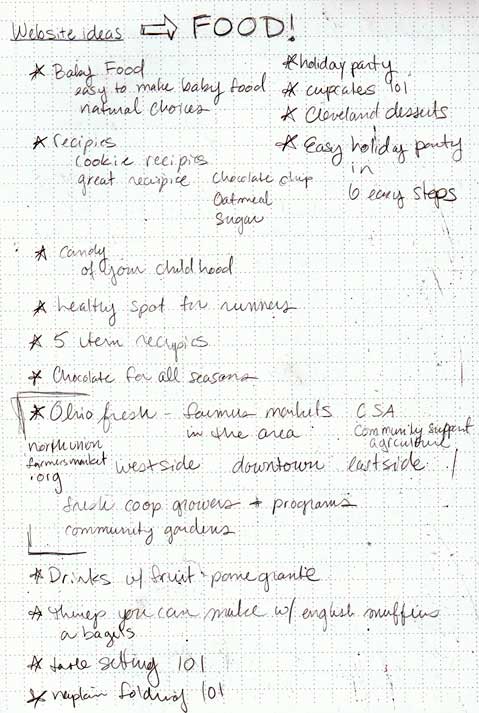 Website ideas ⇒ FOOD!
* Baby Food
easy to make baby food
natural choices
* recipies
cookie recipies
great recipies chocolate chip
Oatmeal
Sugar
* holiday party
* cupcakes 101
* Cleveland desserts
* Easy holiday party
in
6 easy steps
* candy
of your childhood
* healthy spot for runners
* 5 item recipies
* Chocolate for all seasons
* Ohio fresh - farmers markets CSA
in the area community support
agriculture
north union
farmers market
.org
westside downtown eastside /
fresh coop growers + programs
community gardens
* Drinks w/ fruit - pomegrante
* things you can make w/ english muffins
or bagels
* table setting 101
* napkin folding 101